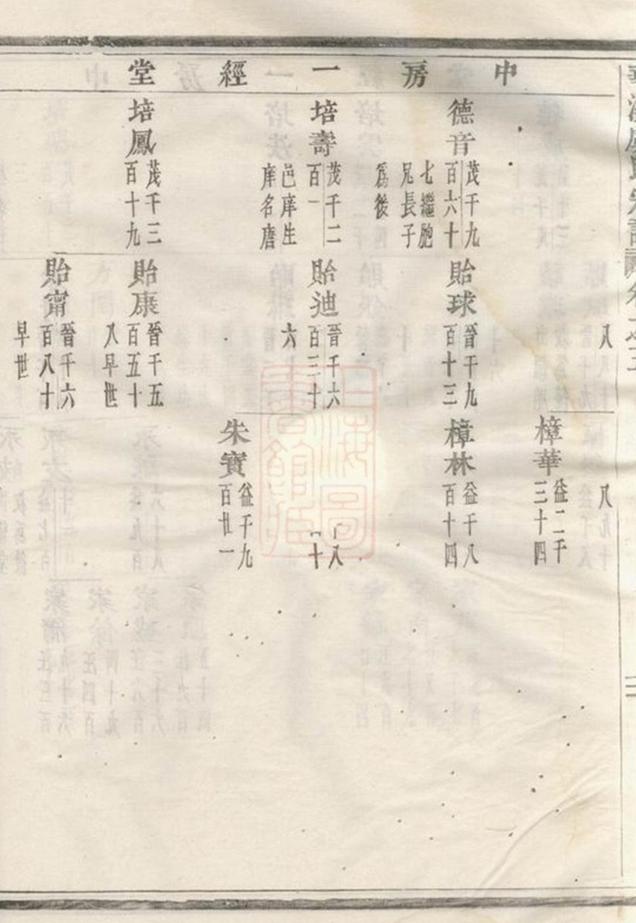 中房一經堂
八
八九十
樟華
益二千
三十四
德音
茂千九
百六十
七繼胞
兄長子
爲後
貽球
晉千九
百十三
樟林
益千八
百十四
培壽
茂千二
百一
邑庠生
庠名唐
貽迪
晉千六
百三十
六
八
十
朱寶
益千九
百廿一
培鳳
茂千三
百十九
貽康
晉千五
百五十
八早世
貽甯
晉千六
百八十
早世